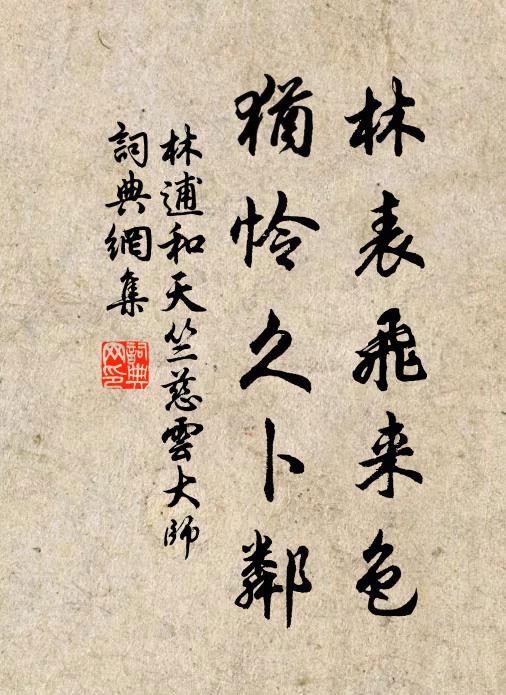 林表飛来色
猶怜久卜鄰
林逋和天竺慈雲大師
詞典網集
詞典网印